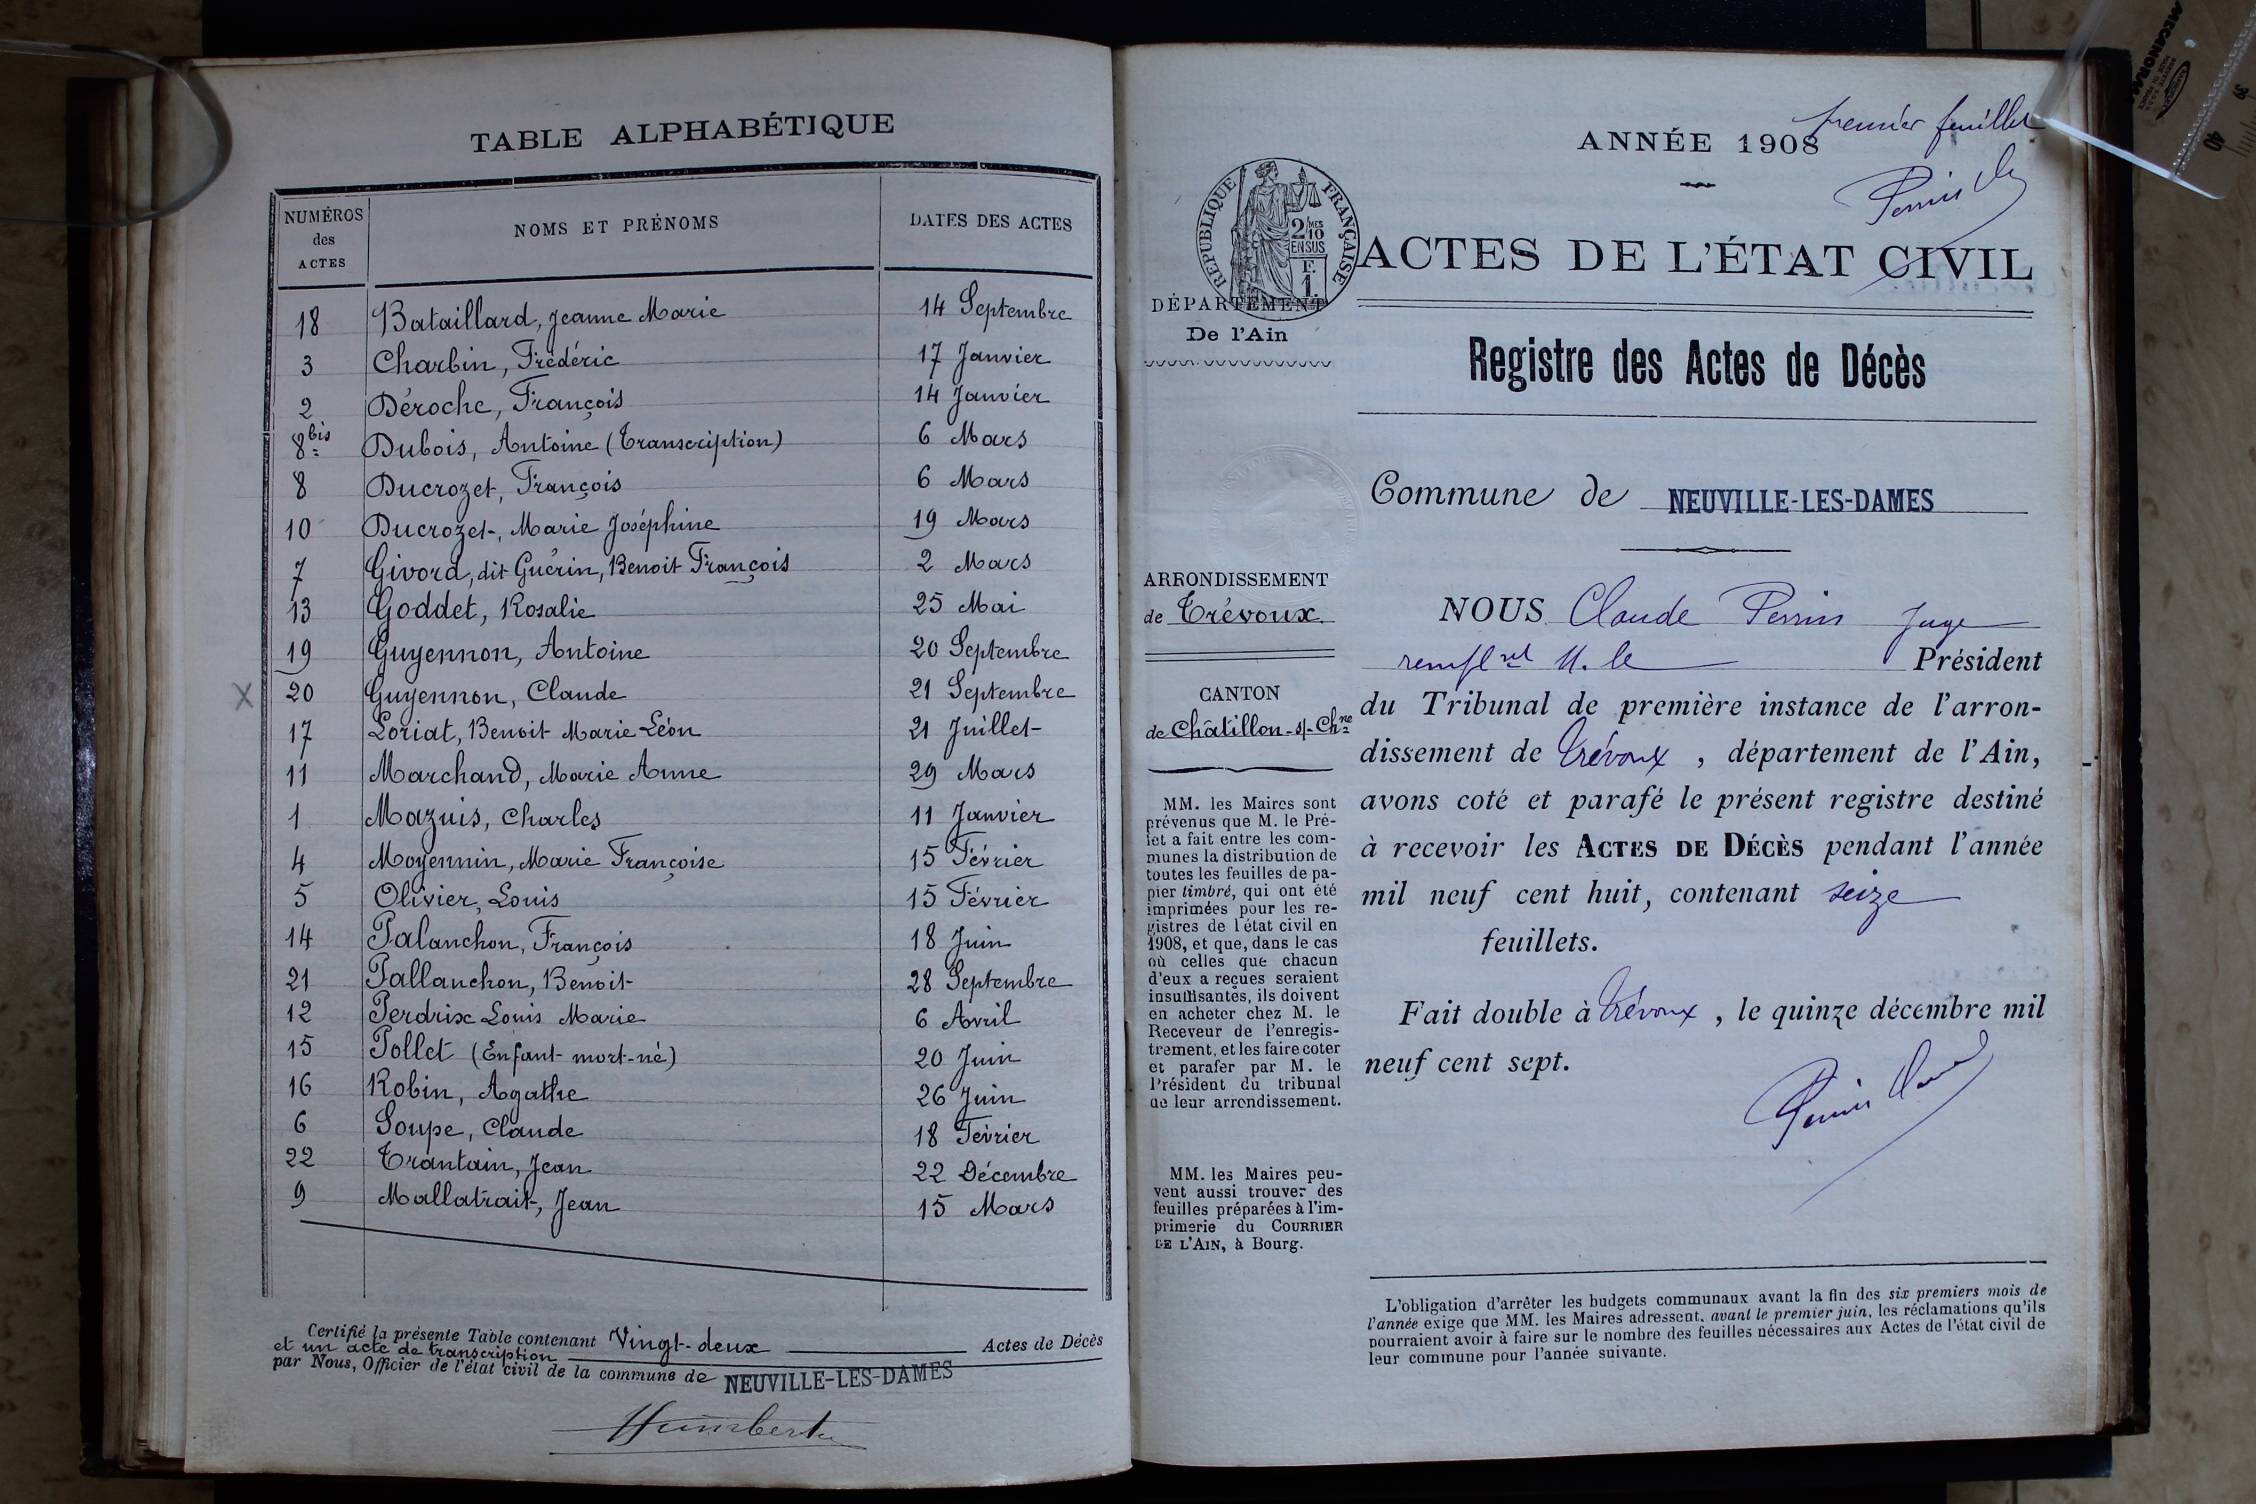 TABLE ALPHABÉTIQUE
NUMÉROS des ACTES NOMS ET PRÉNOMS DATES DES ACTES
18 Bataillard, Jeanne Marie 14 Septembre
3 Charbin, Frédéric 17 Janvier
2 Déroche, François 14 Janvier
8bis Dubois, Antoine (Transcription) 6 Mars
8 Ducrozet, François 6 Mars
10 Ducrozet, Marie Joséphine 19 Mars
7 Givord, dit Guérin, Benoit François 2 Mars
13 Goddet, Rosalie 25 Mai
19 Guyennon, Antoine 20 Septembre
X 20 Guyennon, Claude 21 Septembre
17 Loriat, Benoit Marie Léon 21 Juillet
11 Marchand, Marie Anne 29 Mars
1 Mazuis, Charles 11 Janvier
4 Moyennin, Marie Françoise 15 Février
5 Olivier, Louis 15 Février
14 Palanchon, François 18 Juin
21 Pallanchon, Benoit 28 Septembre
12 Perdrix Louis Marie 6 Avril
15 Pollet (Enfant mort-né) 20 Juin
16 Robin, Agathe 26 Juin
6 Soupe, Claude 18 Février
22 Trantain, Jean 22 Décembre
9 Mallatrait, Jean 15 Mars
Certifié la présente Table contenant Vingt-deux Actes de Décès
et un acte de transcription
par Nous, Officier de l'état civil de la commune de NEUVILLE-LES-DAMES
Humbert
premier feuillet
ANNÉE 1908
Perrin
RÉPUBLIQUE FRANÇAISE
2/10MES
EN SUS
F.
1.
ACTES DE L'ÉTAT CIVIL
DÉPARTEMENT
De l'Ain
Registre des Actes de Décès
Commune de NEUVILLE-LES-DAMES
ARRONDISSEMENT
de Trévoux
CANTON
de Châtillon-s/-Chne
MM. les Maires sont
prévenus que M. le Pré-
fet a fait entre les com-
munes la distribution de
toutes les feuilles de pa-
pier timbré, qui ont été
imprimées pour les re-
gistres de l'état civil en
1908, et que, dans le cas
où celles que chacun
d'eux a reçues seraient
insuffisantes, ils doivent
en acheter chez M. le
Receveur de l'enregis-
trement, et les faire coter
et parafer par M. le
Président du tribunal
de leur arrondissement.
MM. les Maires peu-
vent aussi trouver des
feuilles préparées à l'im-
primerie du COURRIER
DE L'AIN, à Bourg.
NOUS Claude Perrin Juge
remplnt M. le Président
du Tribunal de première instance de l'arron-
dissement de Trévoux, département de l'Ain,
avons coté et parafé le présent registre destiné
à recevoir les ACTES DE DÉCÈS pendant l'année
mil neuf cent huit, contenant seize
feuillets.
Fait double à Trévoux, le quinze décembre mil
neuf cent sept.
Perrin
L'obligation d'arrêter les budgets communaux avant la fin des six premiers mois de
l'année exige que MM. les Maires adressent, avant le premier juin, les réclamations qu'ils
pourraient avoir à faire sur le nombre des feuilles nécessaires aux Actes de l'état civil de
leur commune pour l'année suivante.
39
40